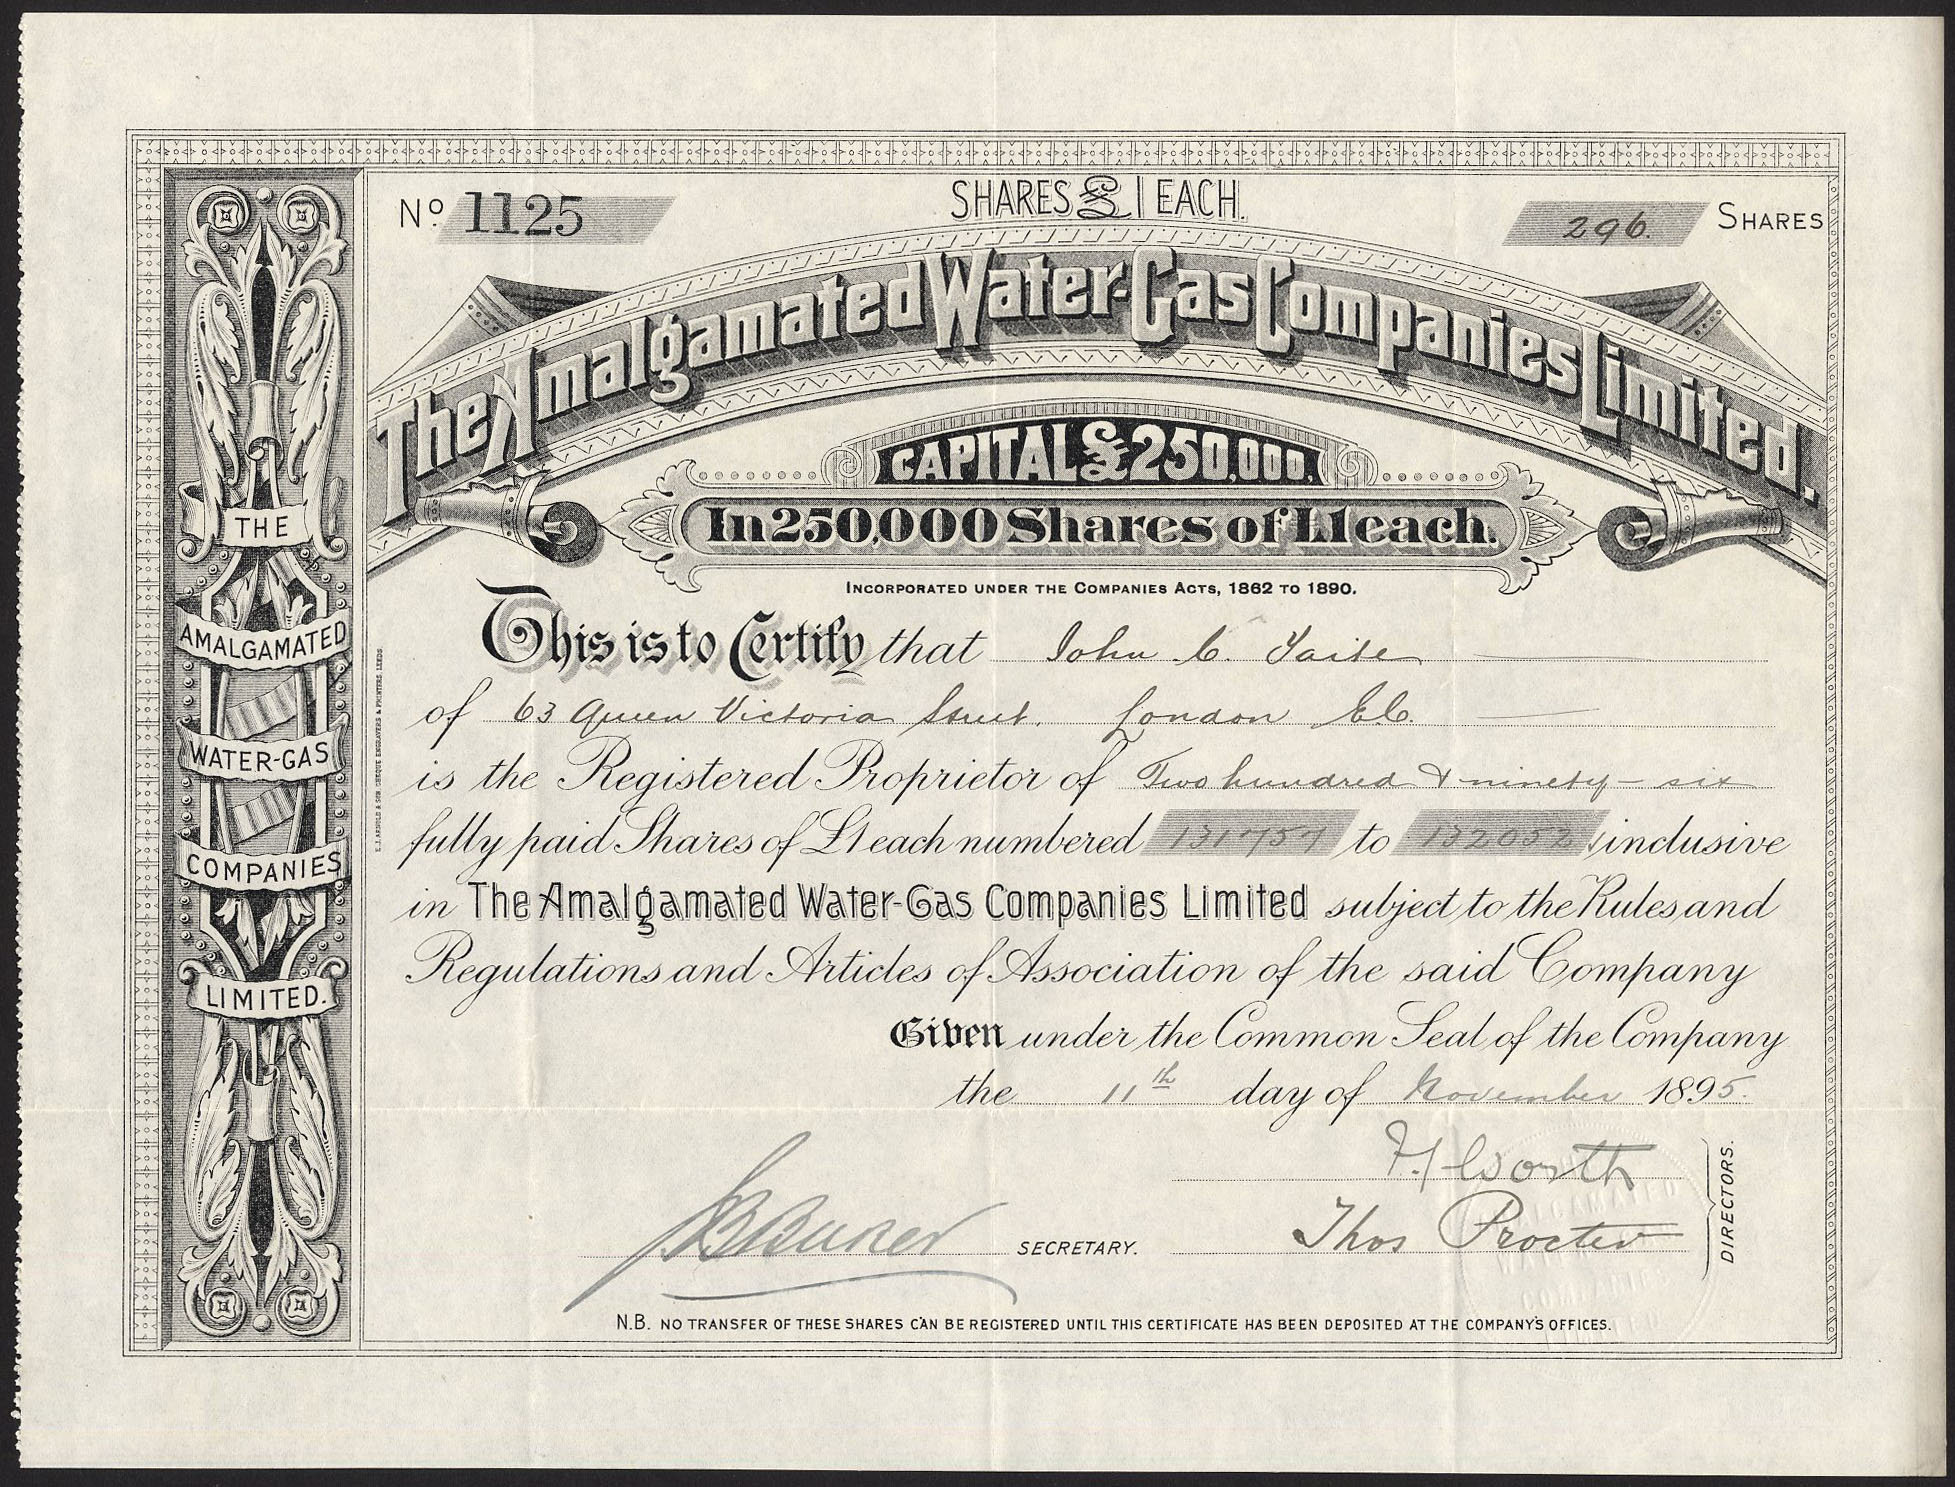 No. 1125
SHARES £1 EACH.
296. SHARES
The Amalgamated Water-Gas Companies Limited.
CAPITAL £250,000,
In 250,000 Shares of £1 each.
INCORPORATED UNDER THE COMPANIES ACTS, 1862 TO 1890.
This is to Certify that John C.
of 63 Queen Victoria Street. London E.C.
is the Registered Proprietor of Two hundred & ninety-six
fully paid Shares of £1 each numbered 131757 to 132052 inclusive
in The Amalgamated Water-Gas Companies Limited subject to the Rules and
Regulations and Articles of Association of the said Company
Given under the Common Seal of the Company
the 11th day of November 1895.
Worth
Thos Procter
DIRECTORS.
SECRETARY.
N.B. NO TRANSFER OF THESE SHARES CAN BE REGISTERED UNTIL THIS CERTIFICATE HAS BEEN DEPOSITED AT THE COMPANY'S OFFICES.
THE
AMALGAMATED
WATER-GAS
COMPANIES
LIMITED.
E.J. ARNOLD & SON, CHEQUE ENGRAVERS & PRINTERS, LEEDS
AMALGAMATED
WATER
COMPANIES
LIMITED